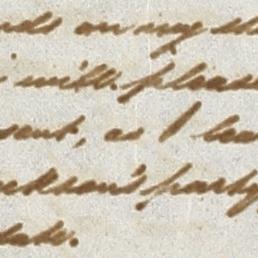 nds on my sh
will please
sent, as I lea
ckson's party
date.